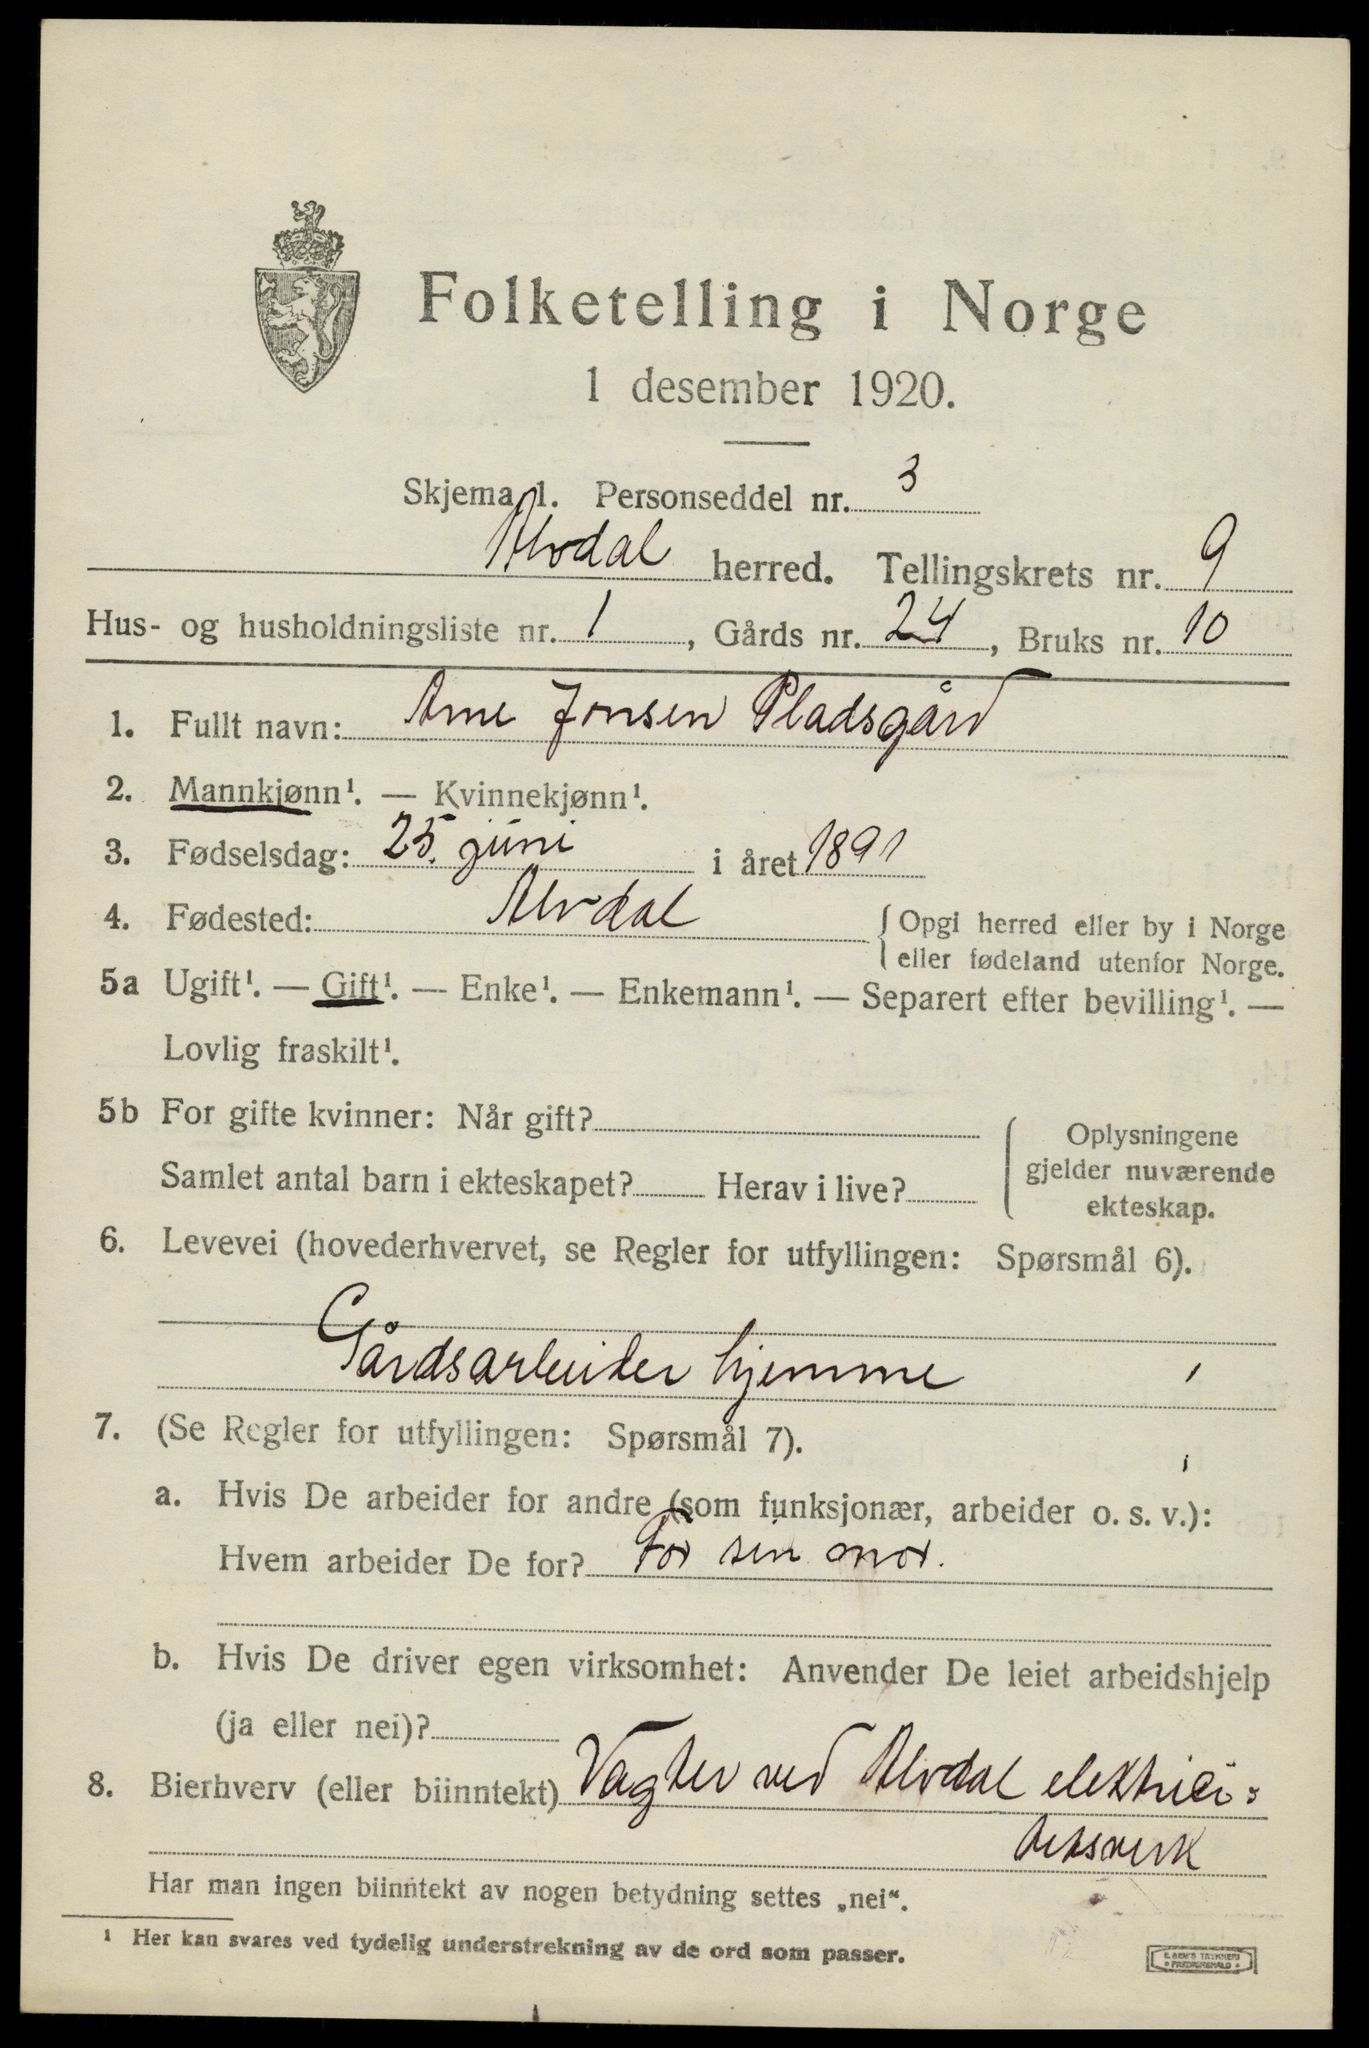 Folketelling i Norge
1 desember 1920.
Skjema 1. Personseddel nr. 3
Alvdal herred. Tellingskrets nr. 9
Hus- og husholdningsliste nr. 1, Gårds nr. 24, Bruks nr. 10
1. Fullt navn: Arne Jonsen Pladsgård
2. Mannkjønn¹. — Kvinnekjønn¹.
3. Fødselsdag: 25. juni i året 1891
4. Fødested: Alvdal { Opgi herred eller by i Norge
eller fødeland utenfor Norge.
5a Ugift¹. — Gift¹. — Enke¹. — Enkemann¹. — Separert efter bevilling¹. —
Lovlig fraskilt¹.
5b For gifte kvinner: Når gift?
Samlet antal barn i ekteskapet? Herav i live?
Oplysningene
gjelder nuværende
ekteskap.
6. Levevei (hovederhvervet, se Regler for utfyllingen: Spørsmål 6).
Gårdsarbeider hjemme
7. (Se Regler for utfyllingen: Spørsmål 7).
a. Hvis De arbeider for andre (som funksjonær, arbeider o. s. v.):
Hvem arbeider De for? For sin mor.
b. Hvis De driver egen virksomhet: Anvender De leiet arbeidshjelp
(ja eller nei)?
8. Bierhverv (eller biinntekt) Vagter ved Alvdal elektrici=
tetsverk
Har man ingen biinntekt av nogen betydning settes „nei“.
¹ Her kan svares ved tydelig understrekning av de ord som passer.